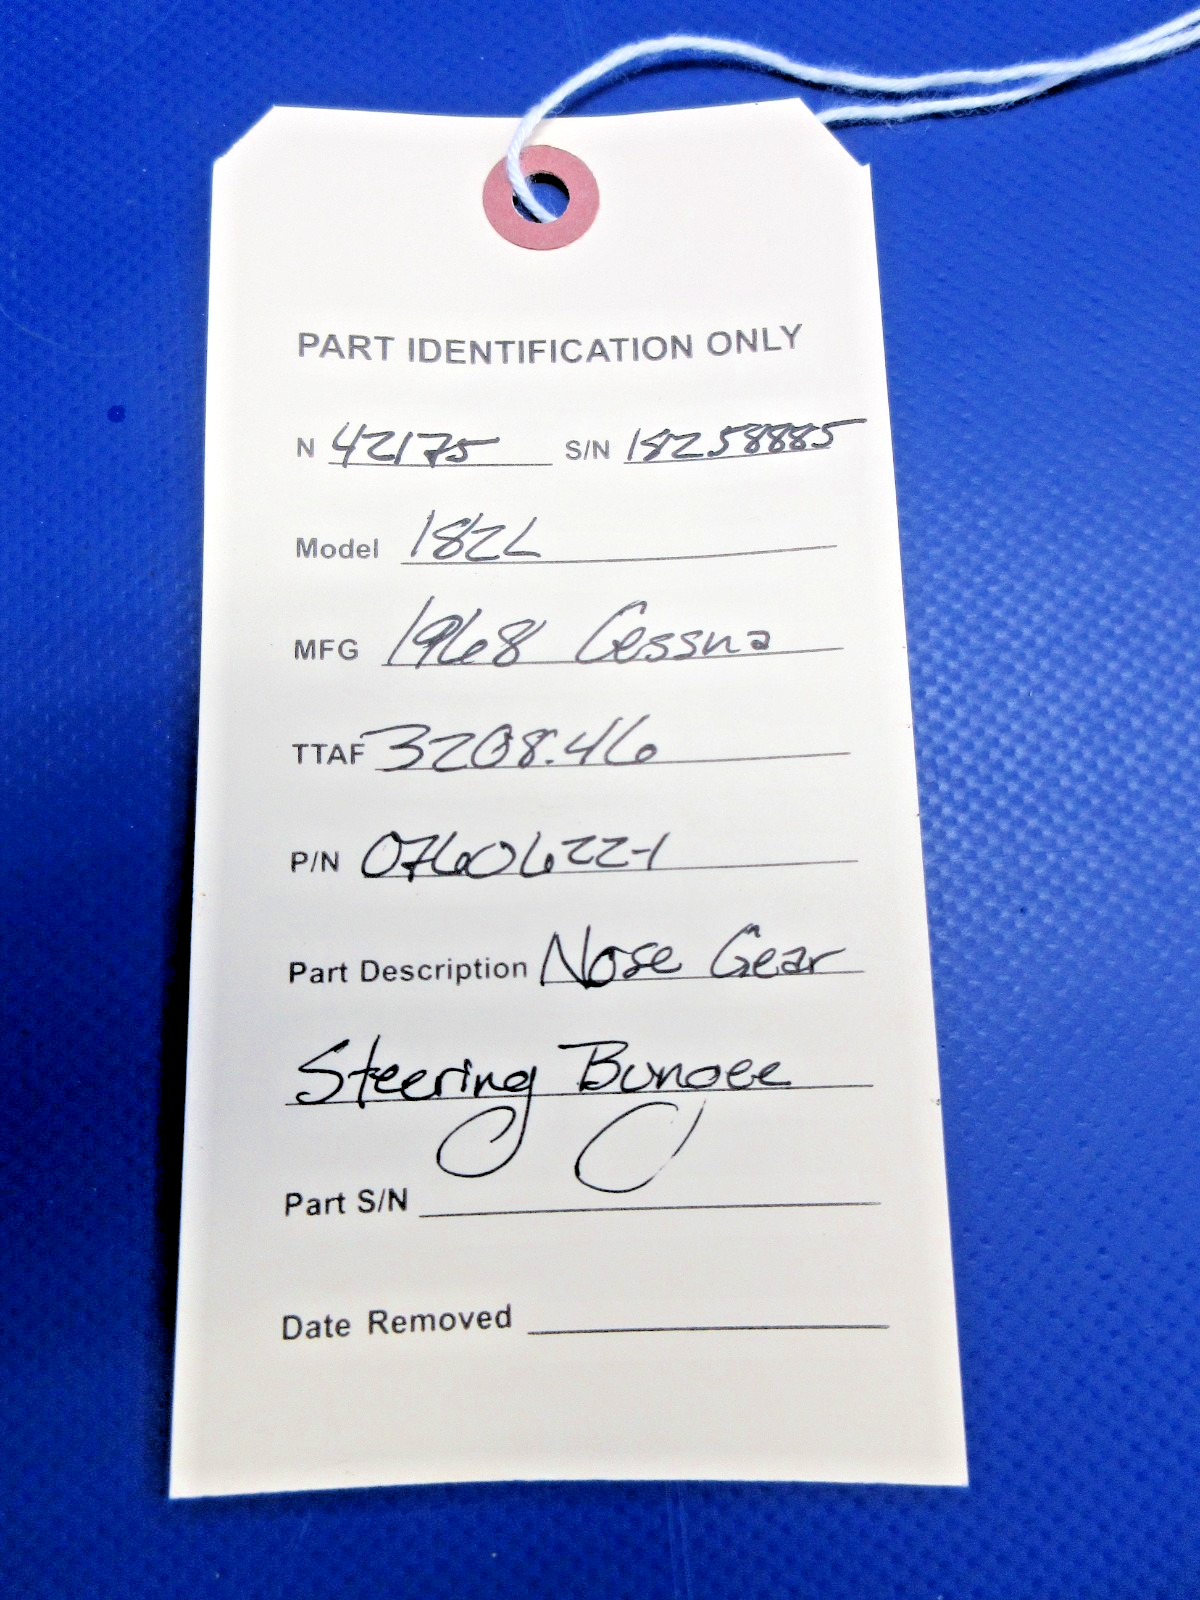 PART IDENTIFICATION ONLY
N 42175 S/N 18258885
Model 182L
MFG 1968 Cessna
TTAF 3208.46
P/N 0760622-1
Part Description Nose Gear
Steering Bungee
Part S/N
Date Removed